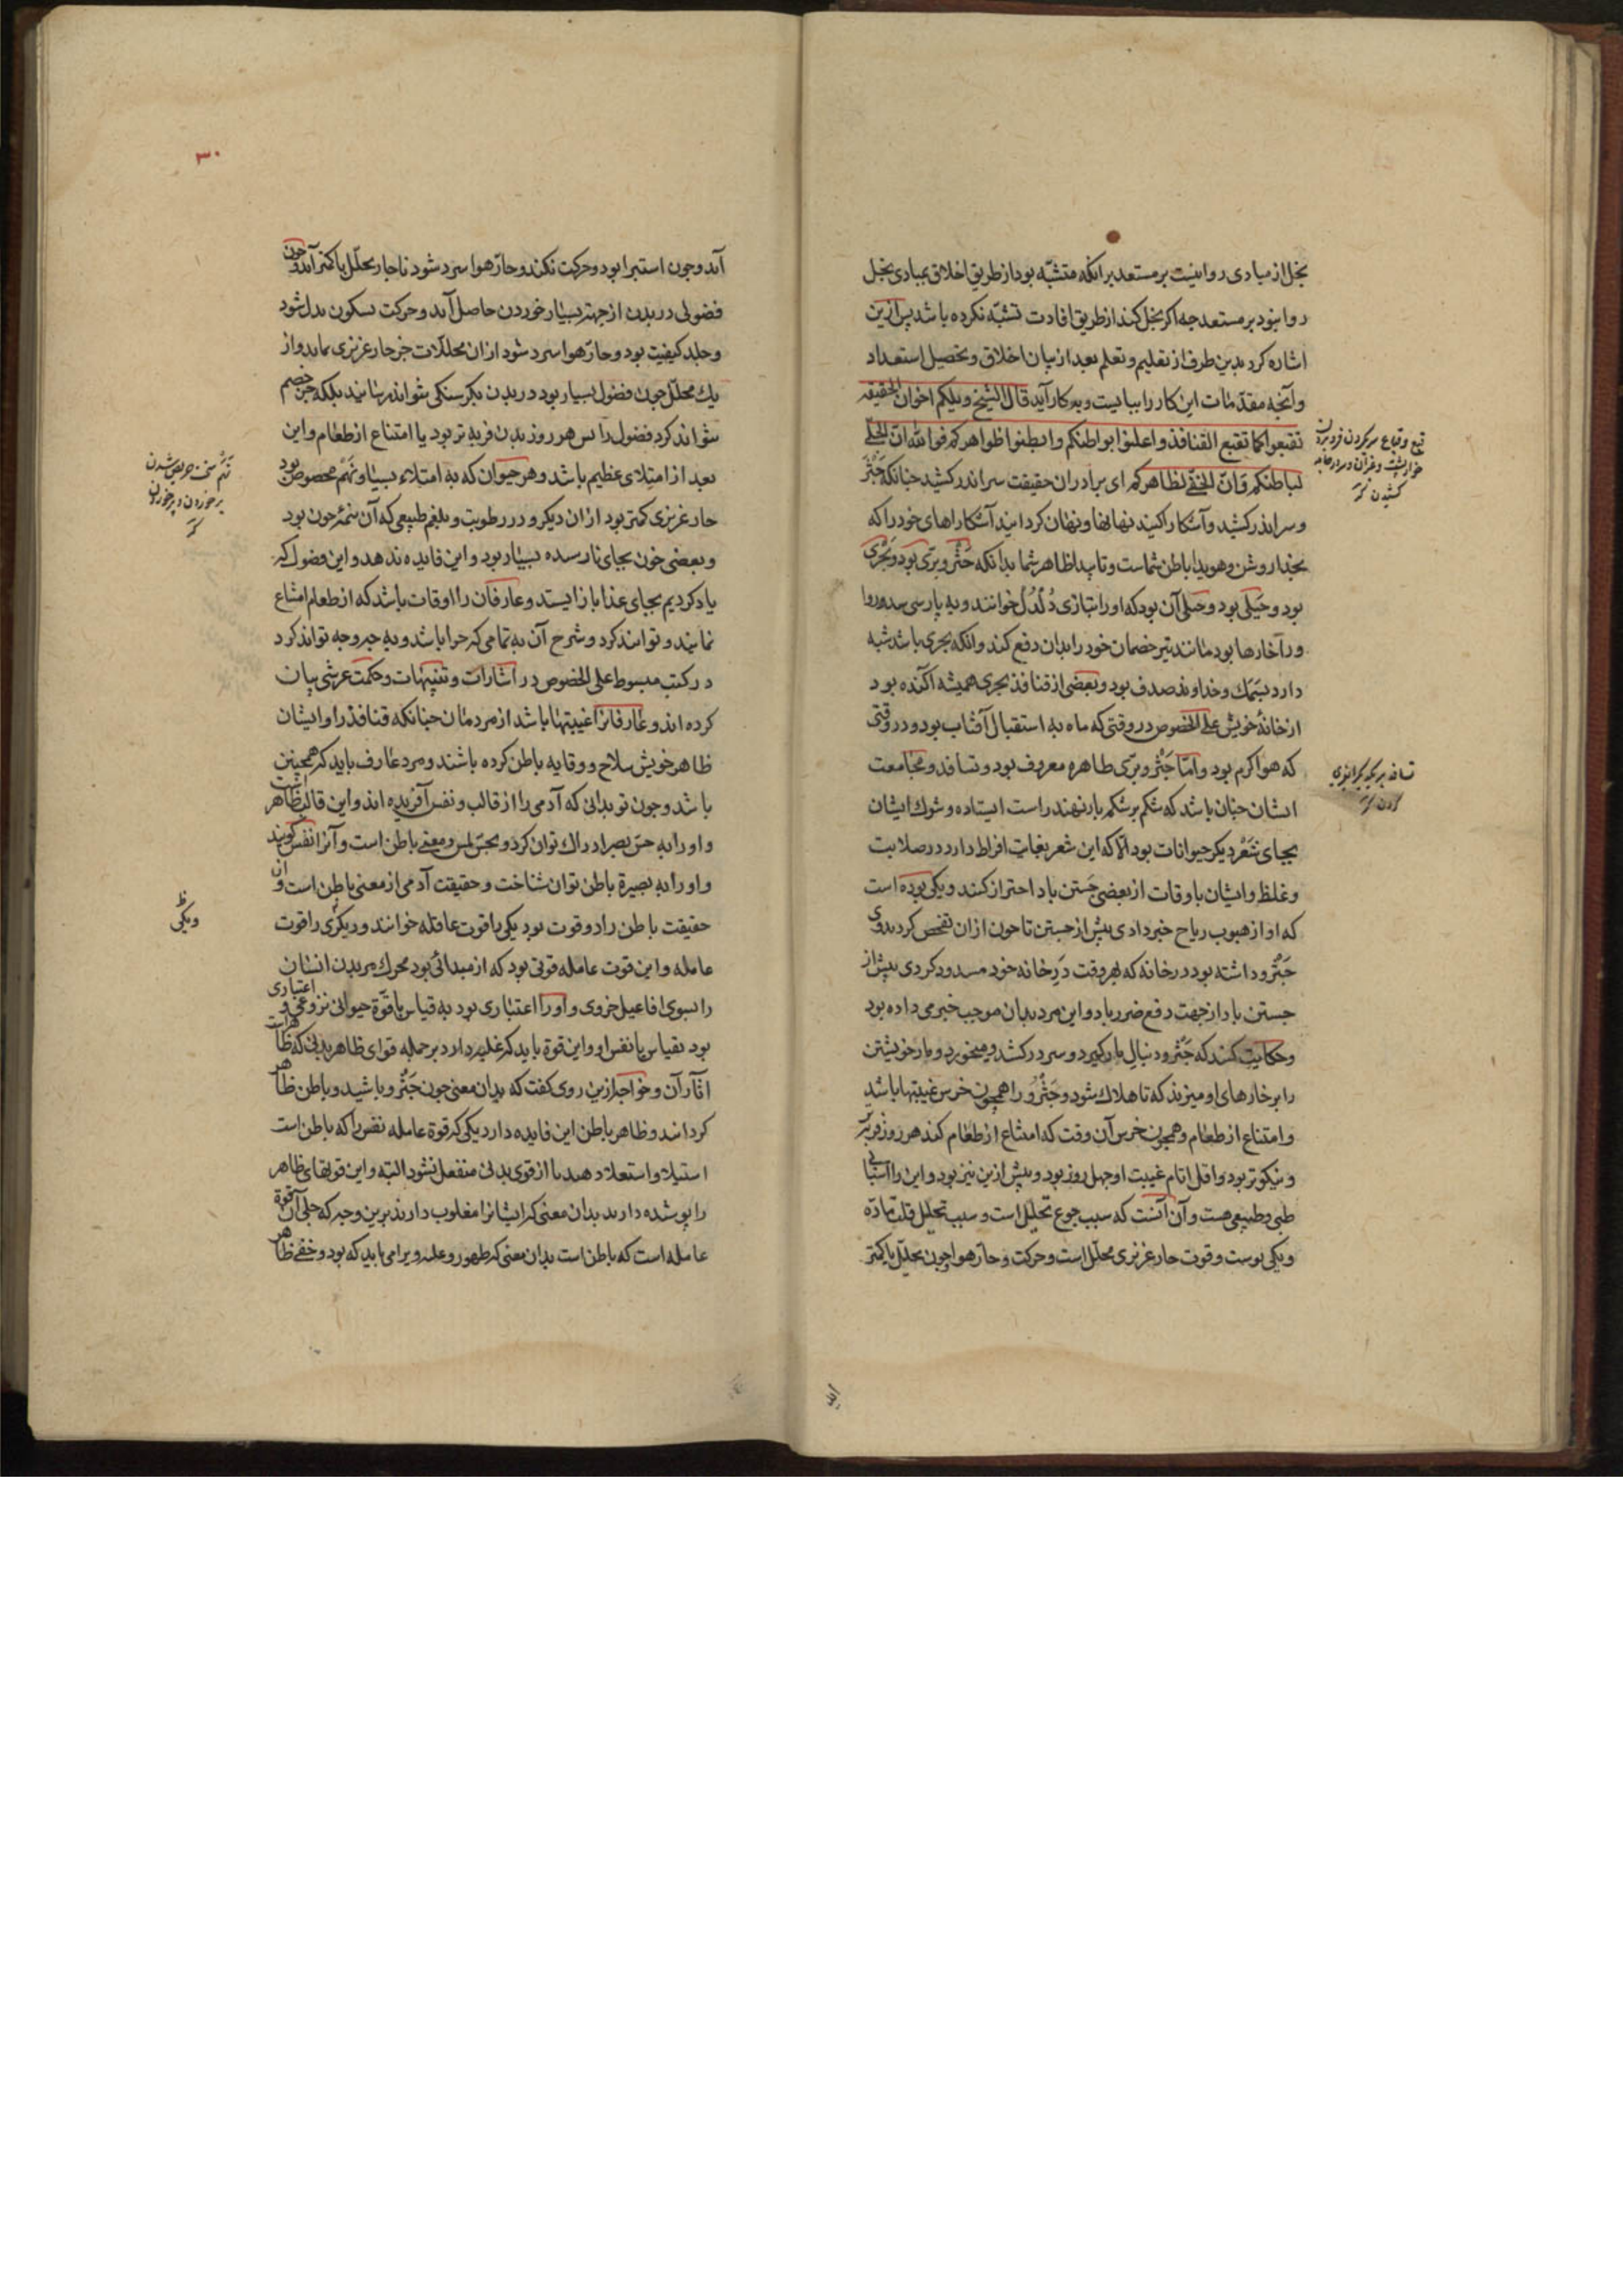 بخل از مبادی روا نیست بر مستعد بر آنکه متشبّه بود از طریق اخلاق بمبادی بخل
روا نبود بر مستعد چه اکر بخل کند از طریق افادت تشبّه نکرده باشد پس ازین
اشاره کرد بدین طرف از تعلیم و تعلم بعد از بیان اخلاق و تحصیل استعداد
و آنچه مقدّمات این کار را ببایست و بدو کار آید قال الشیخ ویلکم اخوان الحقیقه
تقبعوا کما تقبع القنافذ و اعلنوا بواطنکم و ابطنوا ظواهرکم فوالله انّ الجلیّ
لباطنکم و انّ الخفیّ لظاهرکم ای برادران حقیقت سر اندر کشید چنانکه
و سر اندر کشد و آشکارا کنید نهانها و نهان کردانید آشکاراهای خود را که
بخدا روشن و هویدا باطن شماست و ناپیدا ظاهر شما بدانکه و برّی بود و بحری
بود و جبلی بود و جبلی آن بود که او را بتازی دُلدُل خوانند و به پارسی
و را خارها بود مانند تیر خصمان خود را بدان دفع کند و آنکه بحری باشد شبه
دارد بسمک و خداوند صدف بود و بعضی از قنافذ بحری همیشه آکنده بود
از خانهٔ خویش علی الخصوص در وقتی که ماه به استقبال آفتاب بود و در وقتی
که هوا کرم بود و امّا و برّی ظاهره معروف بود و تسافد و مجامعت
ایشان چنان باشد که شکم بر شکم بار نهند راست ایستاده و شوک ایشان
بجای شَعْر دیکر حیوانات بود الّا که این شعر بغایت افراط دارد در صلابت
و غلظ و ایشان باوقات از بعضی جستن باد احتراز کنند و یکی بوده است
که او از هبوب ریاح خبر دادی پیش از جستن تا چون از آن تفحص کردند وی
و داشته بود در خانه که بهر وقت در خانه خود مسدود کردی پیش از
جستن باد از جهت دفع ضرر باد و این مرد بدان موجب خبر می داده بود
و حکایت کنند که و دنبال مار کیرد و سر در کشد و میخورد و مار خویشتن
را بر خارهای او میزند که تا هلاک شود و را همچون خرس غیبتها باشد
و امتناع از طعام و همچون خرس آن وقت که امتناع از طعام کند هر روز فربه تر
و نیکوتر بود و اقل ایّام غیبت او چهل روز بود و بیش ازین نیز بود و این را اسبابی
طبی و طبیعی هست و آن آنست که سبب جوع تحلیل است و سبب تحلیل قلت مادّه
و یکی بوست و قوت حار غریزی محلّل است و حرکت و حارّ هوا چون تحلیل یا کمتر
قبع و قباع سر کردن فرو بردن
خوارپشت و سر در جامه
کشیدن
تسافد بر یکدیکر
۳۰
آید و چون استبرا بود و حرکت نکند و حارّ هوا سرد شود ناچار تحلّل با کمتر آید و چون
فضولی در بدن از جهة بسیار خوردن حاصل آید و حرکت بسکون بدل شود
و جلد کیفیت بود و حارّ هوا سرد شود از آن محلّلات جز حار غریزی نماند و از
یک محلّل چون فضول بسیار بود در بدن بکرسنکی نتواند رسانید بلکه هضم
نتواند کرد فضول را پس هر روز بدن فربه تر بود با امتناع از طعام و این
بعد از امتلای عظیم باشد و هر حیوان که به امتلاء بسیار و نَهَم مخصوص بود
حار غریزی کمتر بود از آن دیکر و در رطوبت و بلغم طبیعی که آن تتمهٔ خون بود
و بعضی خون بجای نارسده بسیار بود و این فایده ندهد و این فضول که
یاد کردیم بجای غذا باز ایستد و عارفان را اوقات باشد که از طعام امتناع
نمایند و توانند کرد و شرح آن به تمامی که چرا باشد و به چه وجه تواند کرد
در کتب مبسوط علی الخصوص در اشارات و تنبیهات و حکمت عرشی بیان
کرده اند و عارفانرا غیبتها باشد از مردمان چنانکه قنافذ را و ایشان
ظاهر خویش سلاح و وقایه باطن کرده باشند و مرد عارف باید که همچنین
باشد و چون تو بدانی که آدمی را از قالب و نفس آفریده اند و این قالب ظاهر است
و او را به حسّ بصر ادراک توان کرد و بحسّ لمس و معنی باطن است و آنرا نفس کویند
و او را به بصیرة باطن توان شناخت و حقیقت آدمی از معنی باطن است و آن
حقیقت باطن را دو قوت بود یکی را قوت عاقله خوانند و دیکری را قوت
عامله و این قوت عامله قوتی بود که از مبدائی بود محرک مر بدن انسان
را بسوی افاعیل جزوی و او را اعتباری بود به قیاس با قوّة حیوانی نزوعی و اعتباری
بود بقیاس با نفس او و این قوة باید که غلبه دارد بر جمله قوای ظاهر بدنی که ظاهر است
آثار آن و خواجه ازین روی کفت که بدان معنی چون و باشید و باطن ظاهر
کردانند و ظاهر باطن این فایده دارد یکی که قوة عامله نفس را که باطن است
استیلا و استعلا دهند تا از قوی بدنی منفعل نشود البته و این قوتهای ظاهر
را پوشده دارند بدان معنی که ایشانرا مغلوب دارند برین وجه که جلی آن قوة
عامله است که باطن است بدان معنی که ظهور و غلبه ویرا می باید که بود و خفی ظاهر
نَهَم سخت حریص شدن
بر خوردن و پر خوردن
ویکی